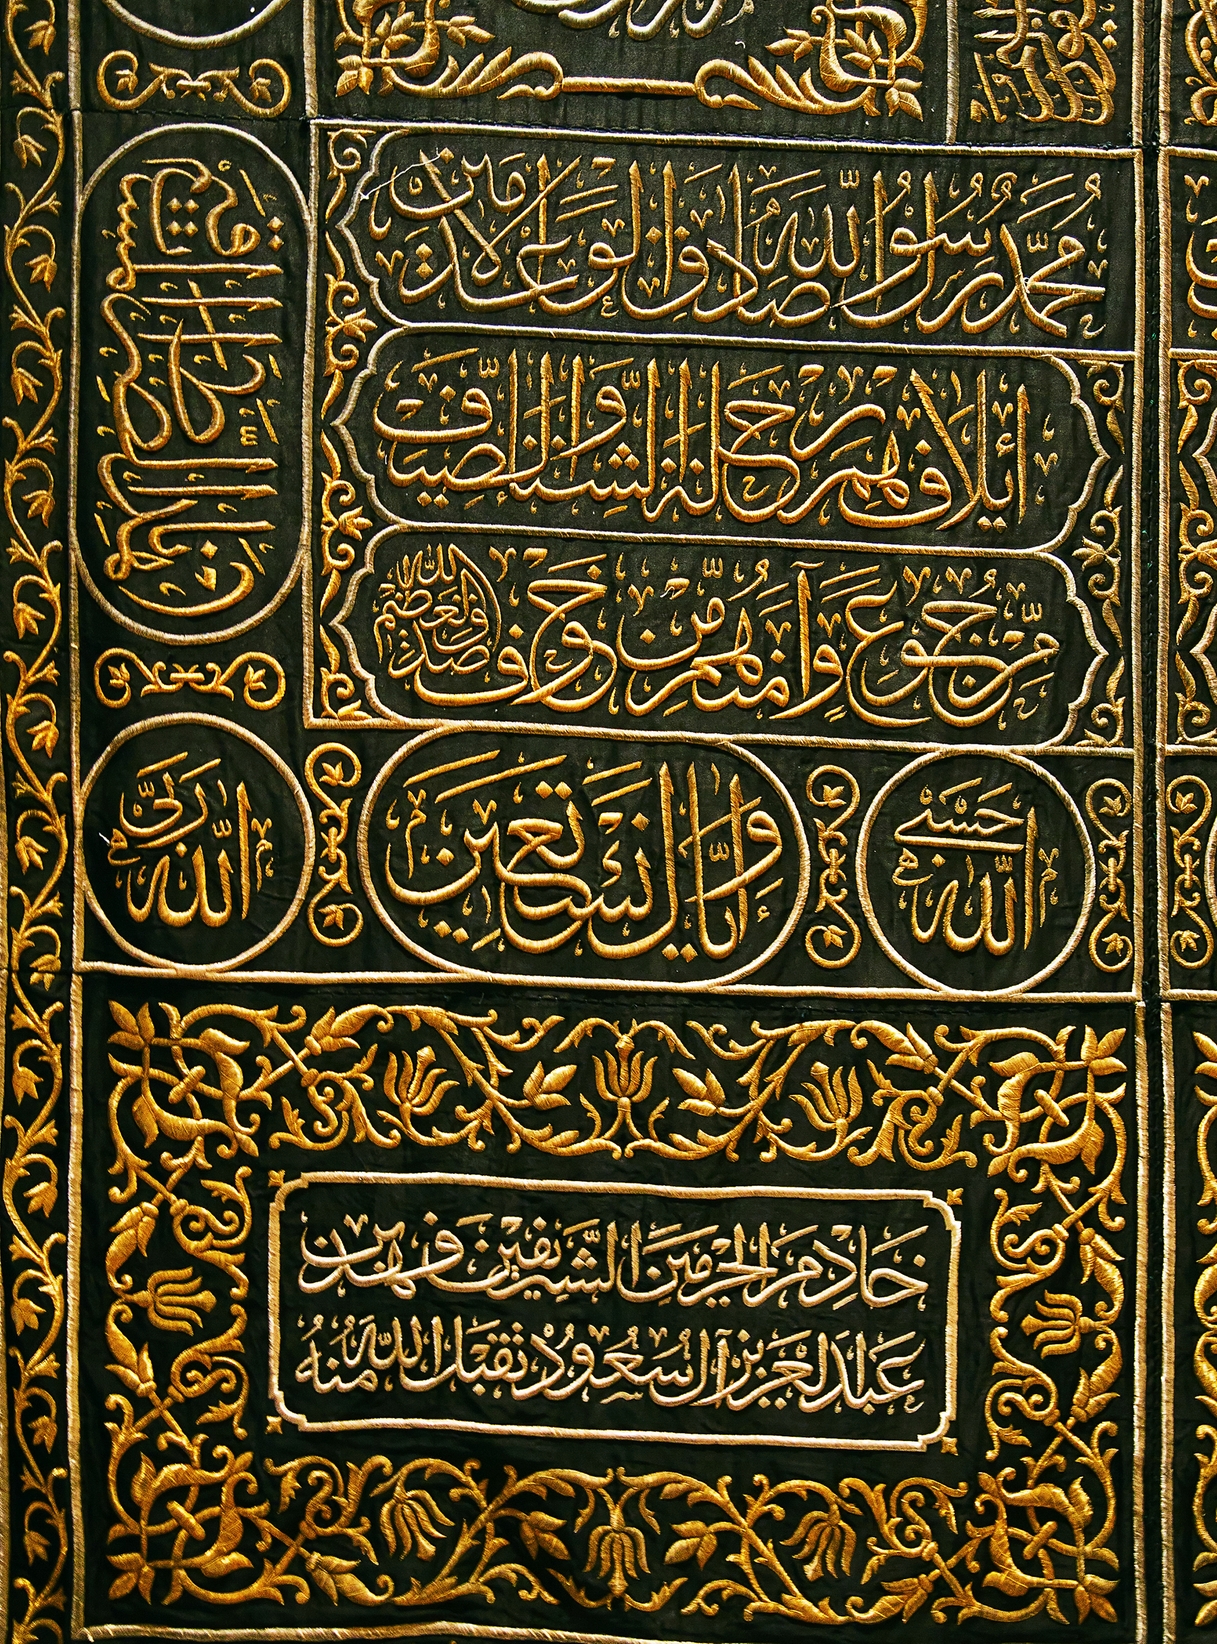 محمد رسول الله صادق الوعد الأمين
إيلافهم رحلة الشتاء والصيف
من جوع وآمنهم من خوف صدق الله العظيم
الله ربي
وإياك نستعين
الله حسبي
خادم الحرمين الشريفين فهد بن
عبد العزيز آل سعود تقبل الله منه